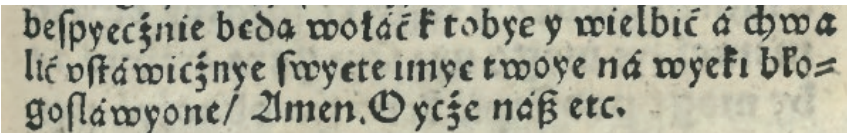 beſpyecżnie bedą wołáć k tobye y wielbić á chwa
lić vſtáwicżnye ſwyete imye twoye ná wyeki bło⸗
goſláwyone/ Amen. O ycże náß etc.